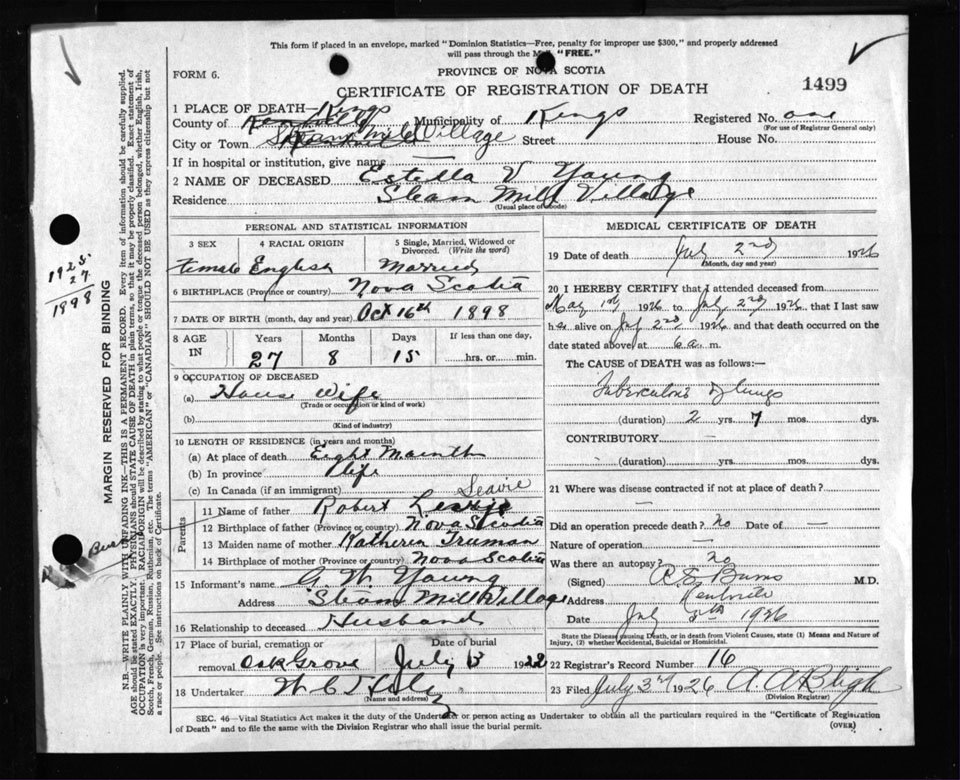 This form if placed in an envelope, marked "Dominion Statistics—Free, penalty for improper use $300," and properly addressed
will pass through the Mail "FREE."
FORM 6.
PROVINCE OF NOVA SCOTIA
CERTIFICATE OF REGISTRATION OF DEATH
1499
1 PLACE OF DEATH—Kings
County of Kentville Municipality of Kings Registered No. one
(For use of Registrar General only)
City or Town Steam Mill Village Street House No.
If in hospital or institution, give name —
2 NAME OF DECEASED Estella V Young
Residence Steam Mill Village
(Usual place of abode)
PERSONAL AND STATISTICAL INFORMATION
3 SEX 4 RACIAL ORIGIN 5 Single, Married, Widowed or Divorced. (Write the word)
Female English Married
6 BIRTHPLACE (Province or country) Nova Scotia
7 DATE OF BIRTH (month, day and year) Oct 16th 1898
8 AGE IN Years Months Days If less than one day,
27 8 15 hrs. or min.
9 OCCUPATION OF DECEASED
(a) House Wife
(Trade or occupation or kind of work)
(b)
(Kind of industry)
10 LENGTH OF RESIDENCE (in years and months)
(a) At place of death Eight Months
(b) In province life
(c) In Canada (if an immigrant)
Parents
11 Name of father Robert
12 Birthplace of father (Province or country) Nova Scotia
13 Maiden name of mother Katheren Truman
14 Birthplace of mother (Province or country) Nova Scotia
15 Informant's name G. W. Young
Address Steam Mill Village
16 Relationship to deceased Husband
17 Place of burial, cremation or Date of burial
removal Oak Grove July 3 192
18 Undertaker W C T
(Name and address)
MEDICAL CERTIFICATE OF DEATH
19 Date of death July 2nd 1926
(Month, day and year)
20 I HEREBY CERTIFY that I attended deceased from
May 1st 1926 to July 2nd 1926 that I last saw
h alive on July 2nd 1926 and that death occurred on
date stated above at m.
The CAUSE of DEATH was as follows:—
Tuberculosis of lungs
(duration) 2 yrs. 7 mos. dys.
CONTRIBUTORY —
(duration) yrs. mos. dys.
21 Where was disease contracted if not at place of death? —
Did an operation precede death? No Date of —
Nature of operation —
Was there an autopsy? no
(Signed) M.D.
Address Kentville
Date July 1926
State the Disease causing Death, or in death from Violent Causes, state (1) Means and Nature
of Injury, (2) whether Accidental, Suicidal or Homicidal.
22 Registrar's Record Number 16
23 Filed July 3rd 1926 A. A. Bligh
(Division Registrar)
SEC. 46—Vital Statistics Act makes it the duty of the Undertaker or person acting as Undertaker to obtain all the particulars required in the "Certificate of Registration
of Death" and to file the same with the Division Registrar who shall issue the burial permit.
(OVER)
MARGIN RESERVED FOR BINDING
N.B.—WRITE PLAINLY WITH UNFADING INK—THIS IS A PERMANENT RECORD. Every item of information should be carefully supplied.
AGE should be stated EXACTLY. PHYSICIANS should STATE CAUSE OF DEATH in plain terms, so that it may be properly classified. Exact statement of
OCCUPATION is very important. RACIAL ORIGIN will be described by stating to what people or tongue the deceased person belonged, whether English, Irish,
Scotch, French, German, Russian, Ruthenian, etc. The terms "AMERICAN" or "CANADIAN" SHOULD NOT BE USED as they express citizenship but not
a race or people. See instructions on back of Certificate.
1925
27
1898